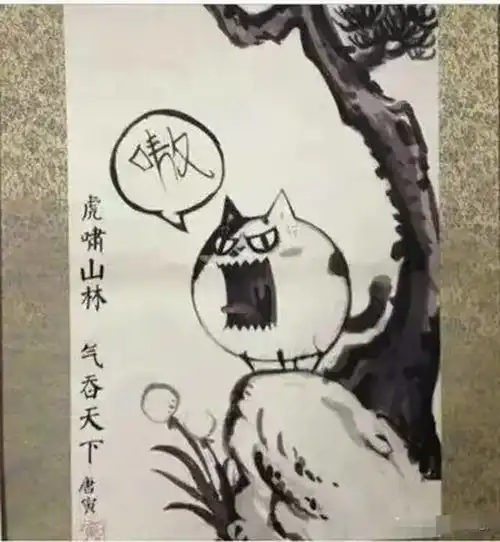 嗷
虎嘯山林 气吞天下
唐寅